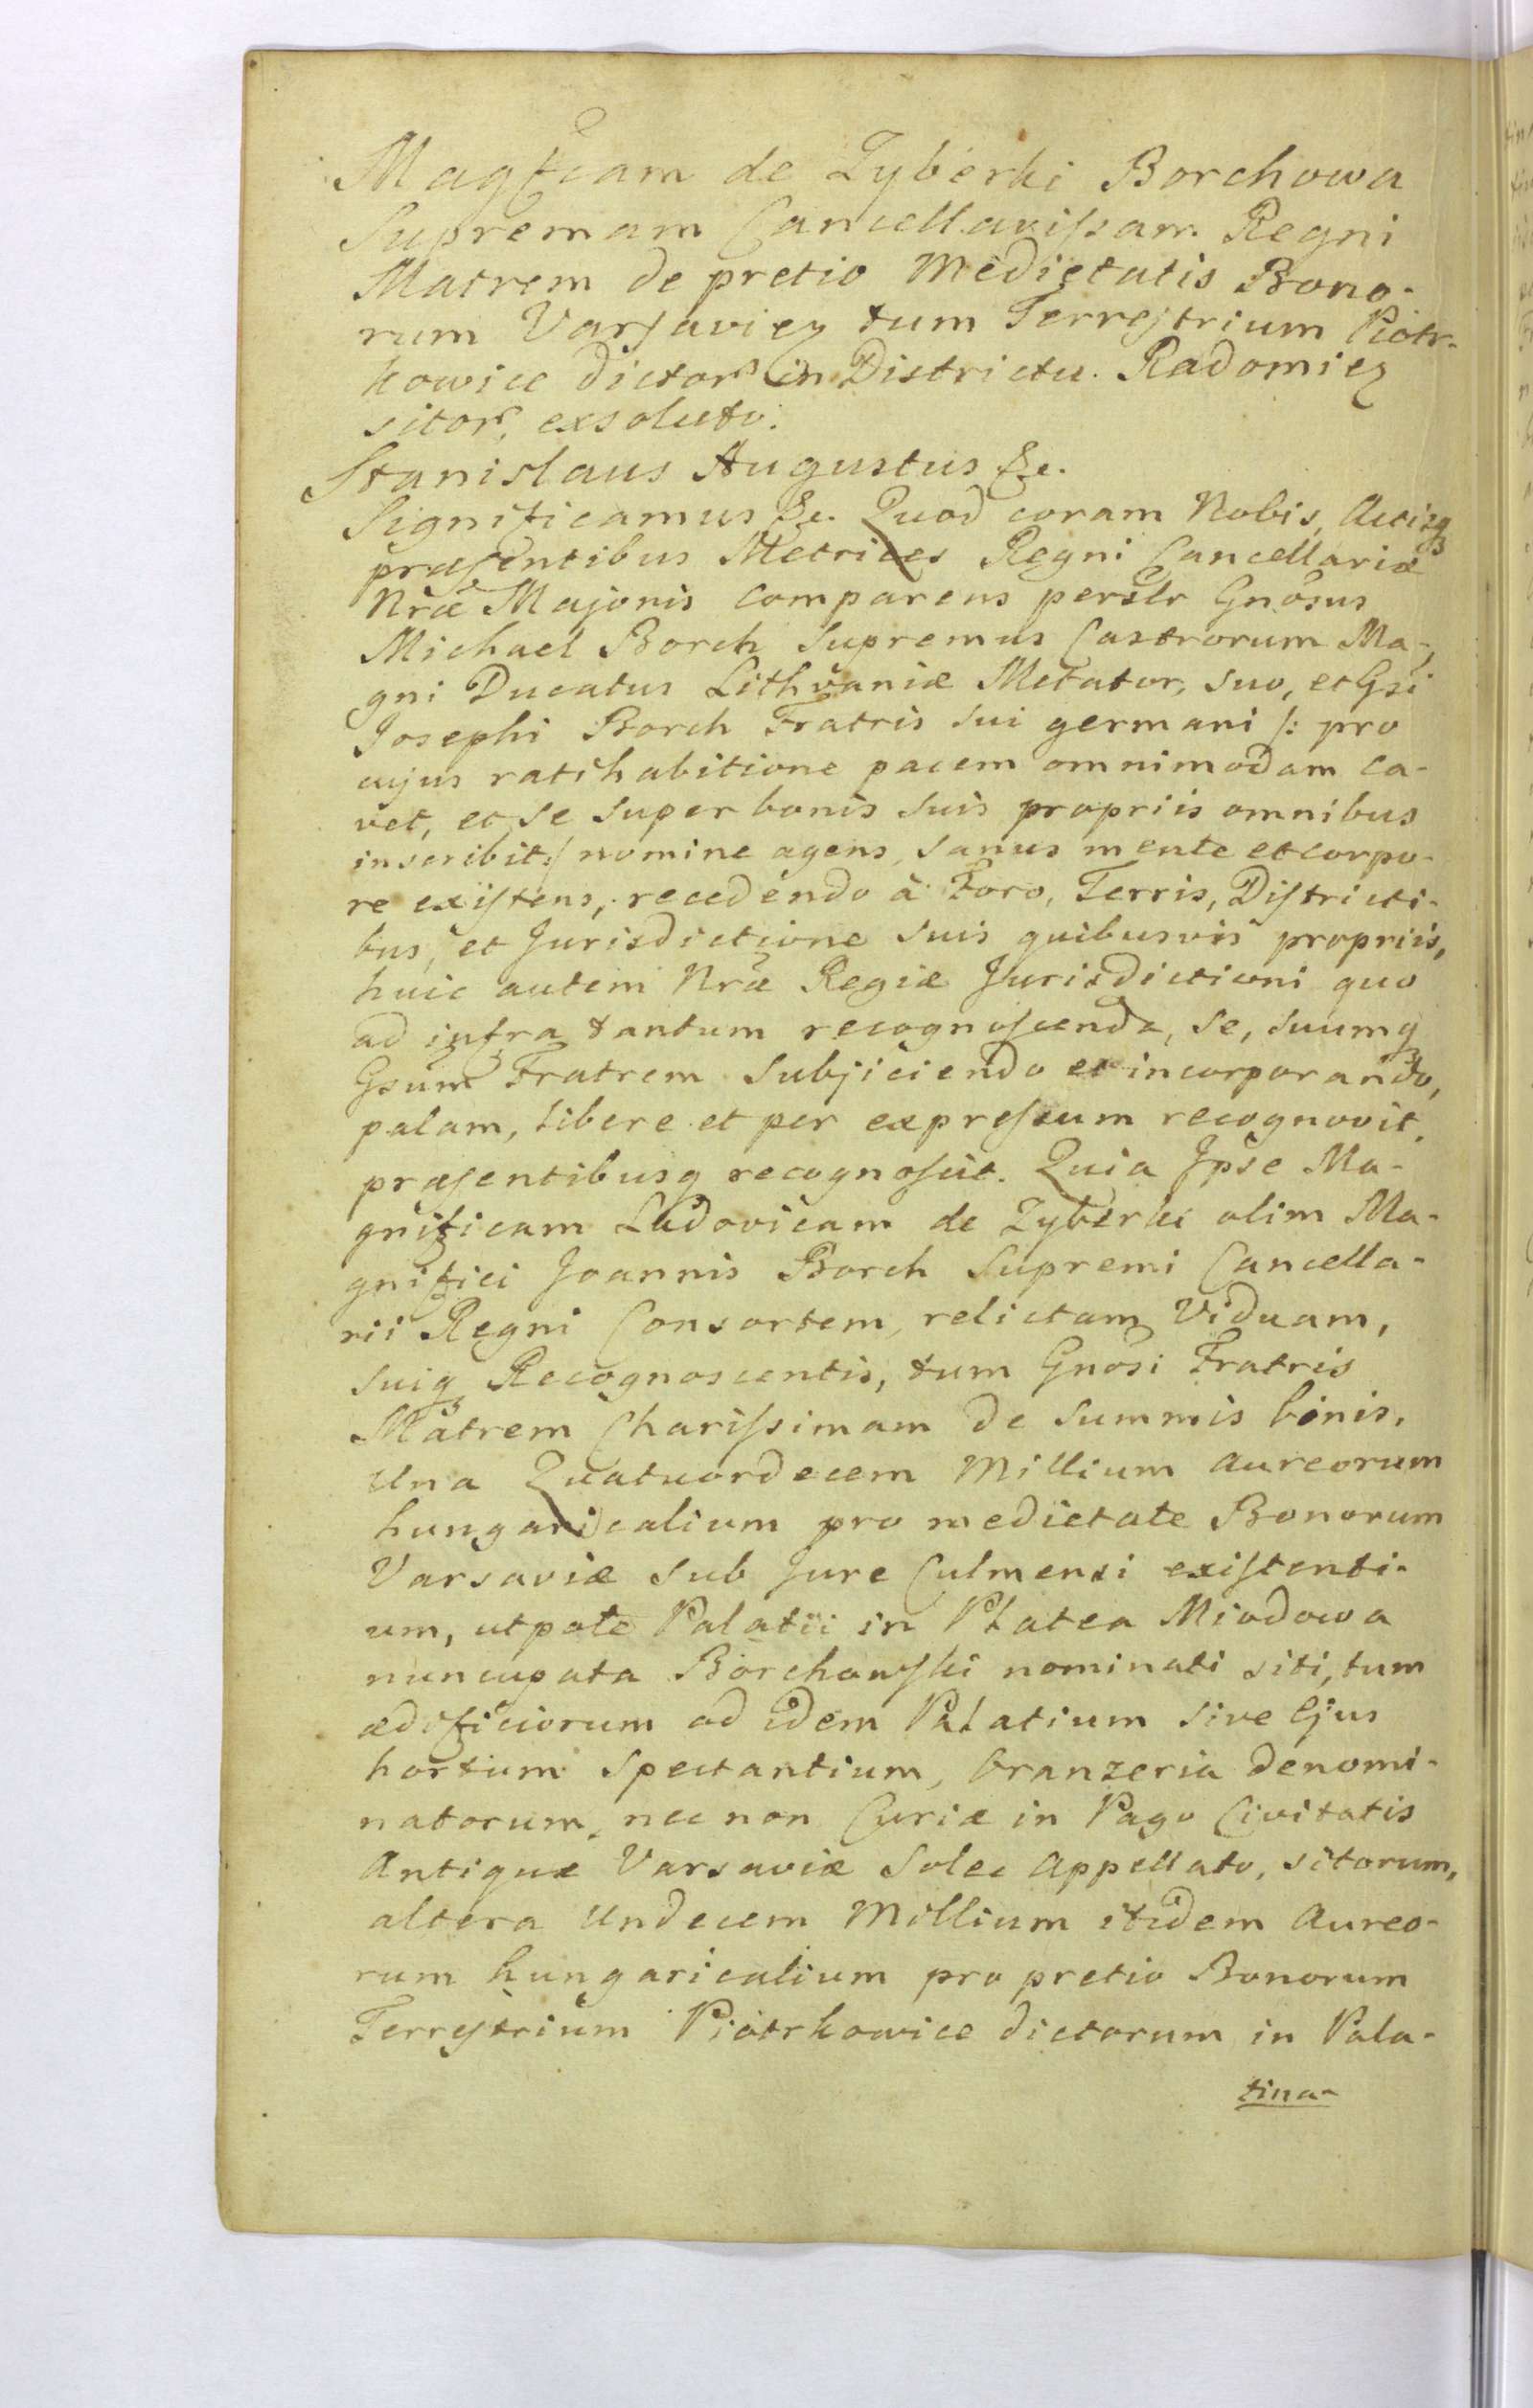 Magficam de Zyberki Borchowa
Supremam Cancellarissam Regni
Matrem de pretio Medietatis Bono-
rum Varsavien tum Terrestrium Piotr-
kowice dictor in Districtu Radomien
sitor, exsoluto.
Stanislaus Augustus &c.
Significamus &c. Quod coram Nobis, Actisq
præsentibus Metrices Regni Cancellariæ
Nræ Majoris Comparens perslr Gnosus
Michael Borch Supremus Castrorum Ma-
gni Ducatus Lithvaniæ Metator, suo, et Gsi
Josephi Borch Fratris sui germani /: pro
cujus ratihabitione pacem omnimodam ca-
vet, et se super bonis suis propriis omnibus
inscribit :/ nomine agens, sanus mente et corpo-
re existens, recedendo à Foro, Terris, Districti-
bus, et Jurisdictione suis quibusvis propriis,
huic autem Nræ Regiæ Jurisdictioni quo
ad infra tantum recognoscenda, se, suumq
Gsum Fratrem Subjiciendo et incorporando,
palam, libere et per expressum recognovit,
præsentibusq recognoscit. Quia Ipse Ma-
gnificam Ludovicam de Zyberki olim Ma-
gnifici Joannis Borch Supremi Cancella-
rii Regni Consortem, relictam Viduam,
suiq Recognoscentis, tum Gnosi Fratris
Matrem Charissimam de Summis binis,
Una Quatuordecem Millium Aureorum
hungaricalium pro medietate Bonorum
Varsaviæ sub Jure Culmensi existenti-
um, utpote Palatii in Platea Miodowa
nuncupata Borchowski nominati siti, tum
ædificiorum ad idem Palatium sive Ejus
hortum spectantium, Oranzeria denomi-
natorum, nec non Curiæ in Pago Civitatis
Antiquæ Varsaviæ Solec Appellato, sitorum,
altera Undecem Millium itidem Aureo-
rum hungaricalium pro pretio Bonorum
Terrestrium Piotrkowice dictorum in Pala-
tina-